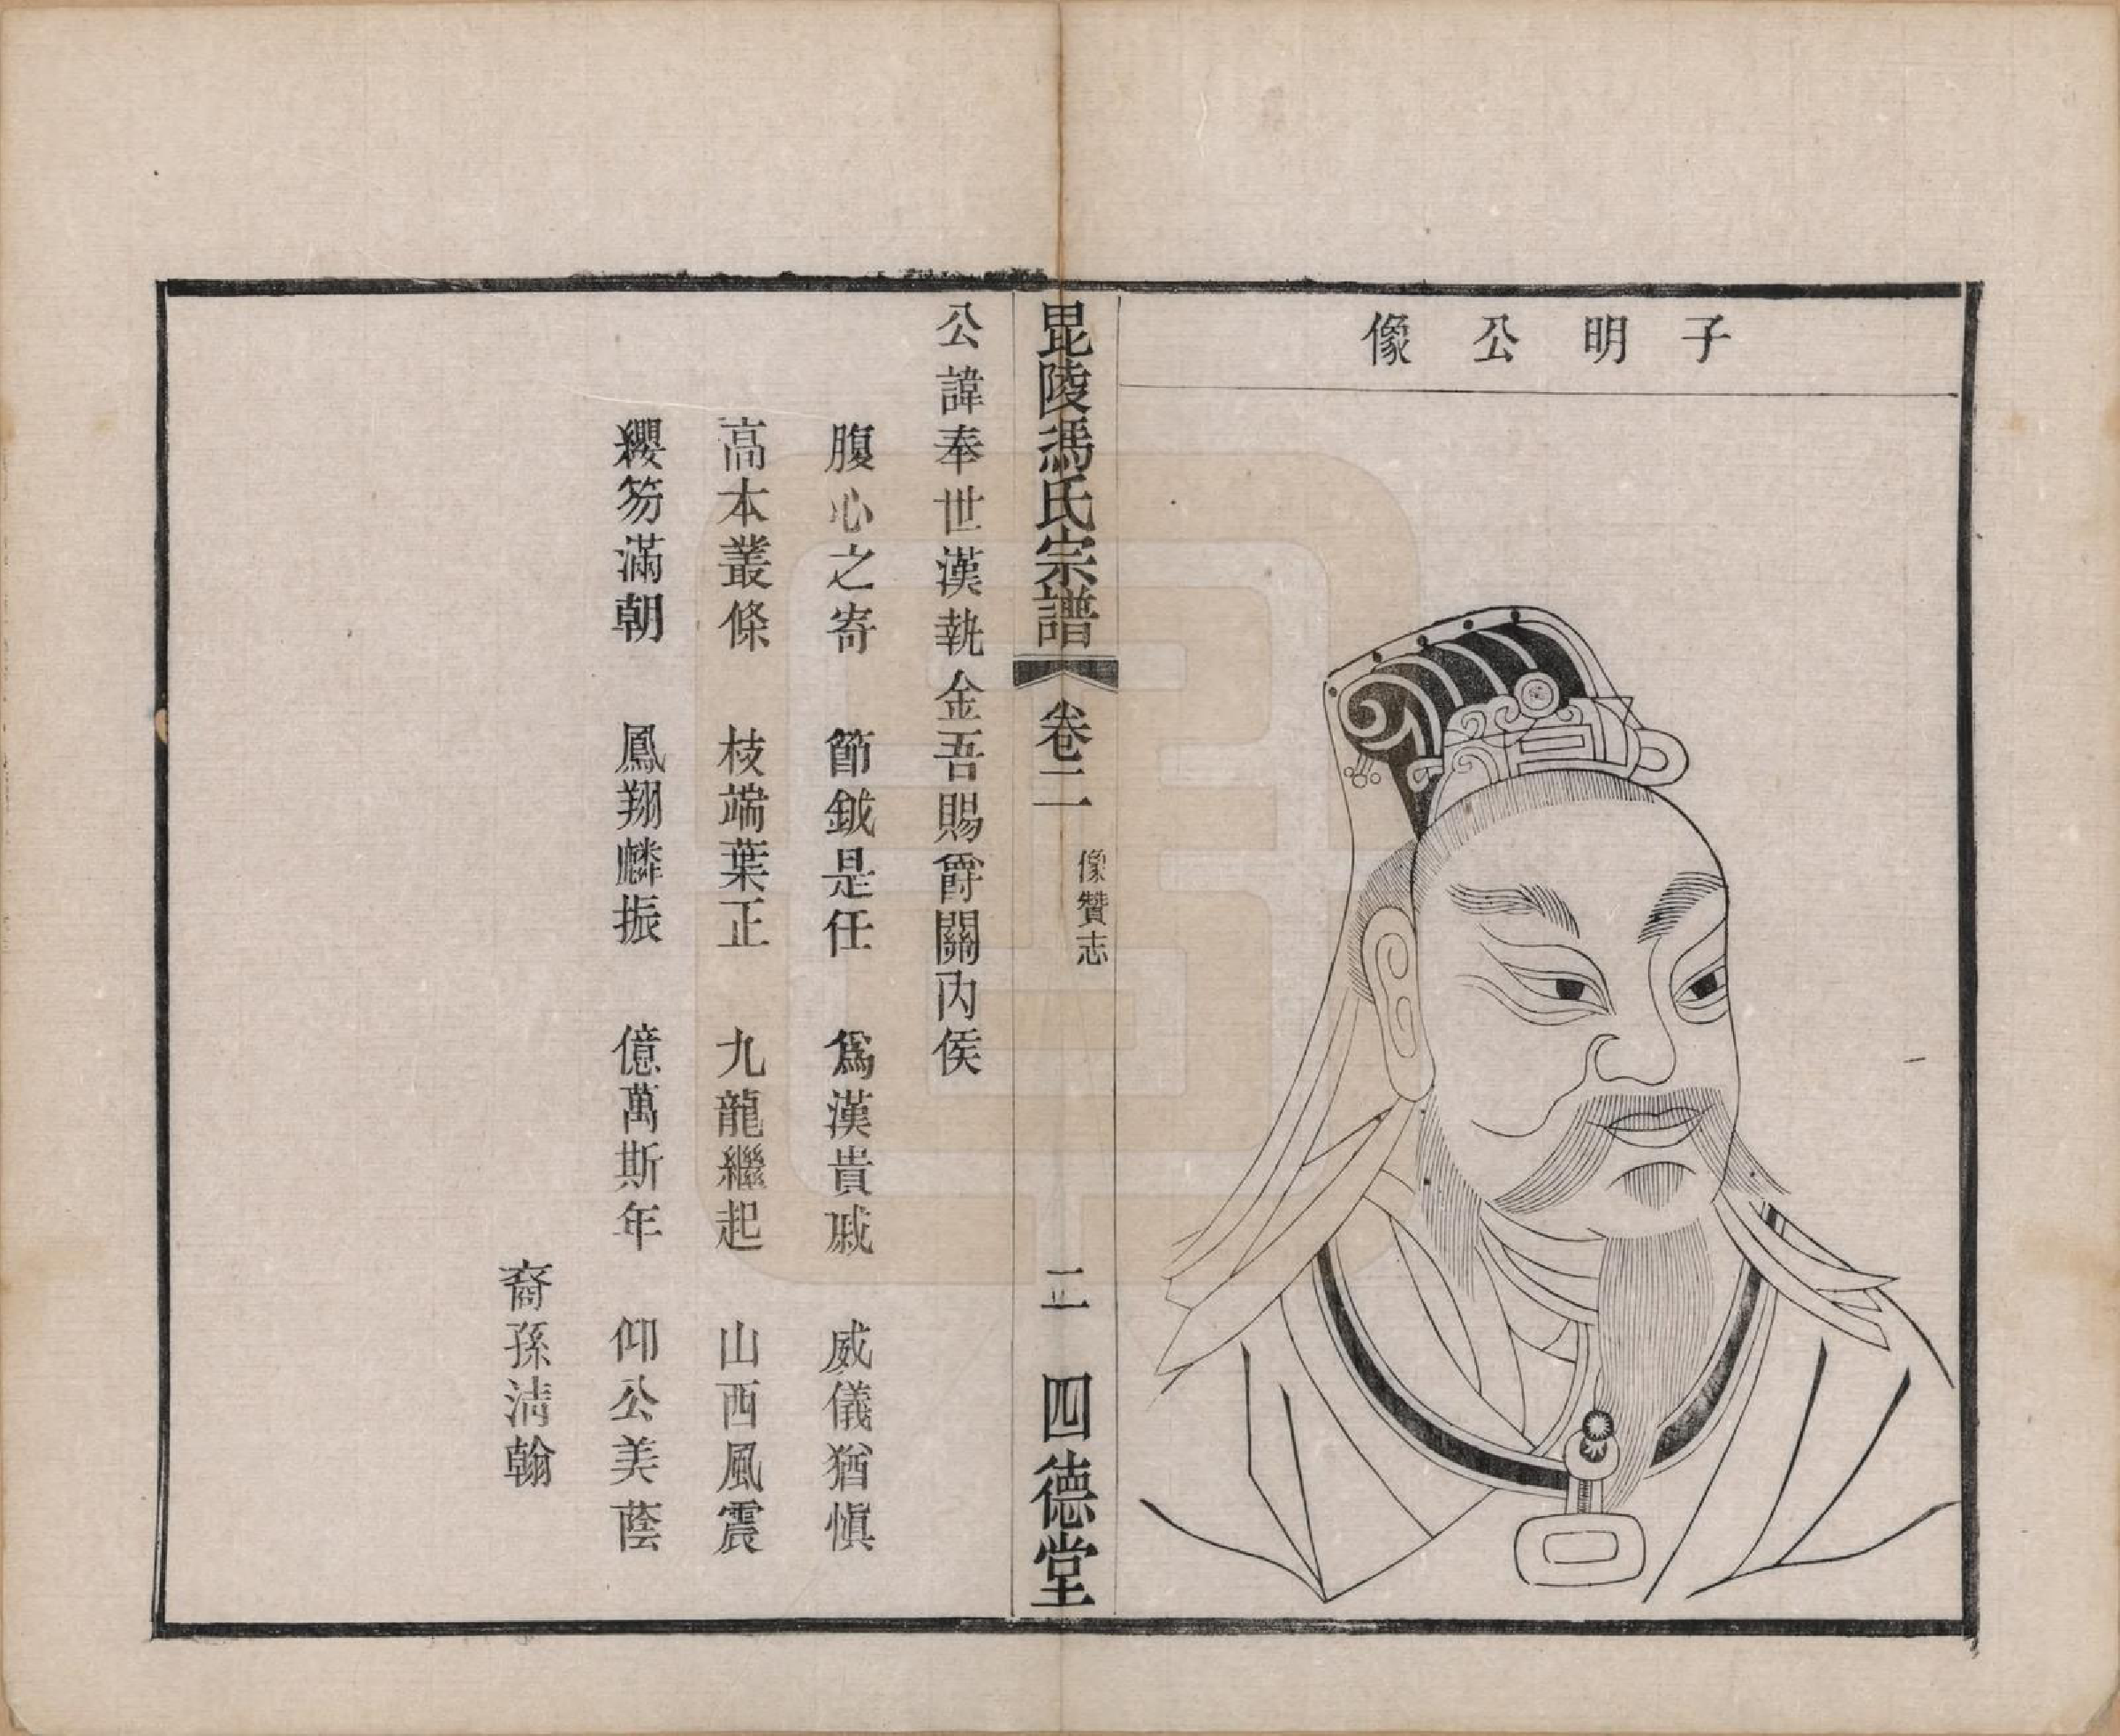 子明公像
毘陵馮氏宗譜 卷二 像贊志 二 四德堂
公諱奉世漢執金吾賜爵關內侯
腹心之寄 節鉞是任 爲漢貴戚 威儀猶愼
高本叢條 枝端葉正 九龍繼起 山西風震
纓笏滿朝 鳳翔麟振 億萬斯年 仰公美蔭
裔孫清翰